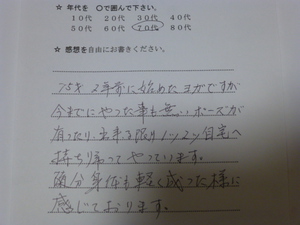 ☆ 年代を ○で囲んで下さい。
10代 20代 30代 40代
50代 60代 70代 80代
☆ 感想を自由にお書きください。
75才 2年前に始めたヨガですが
今までにやった事も無いポーズが
有ったり、出来る限り1ツ2ツ自宅へ
持ち帰ってやっています。
随分身体も軽く成った様に
感じております。